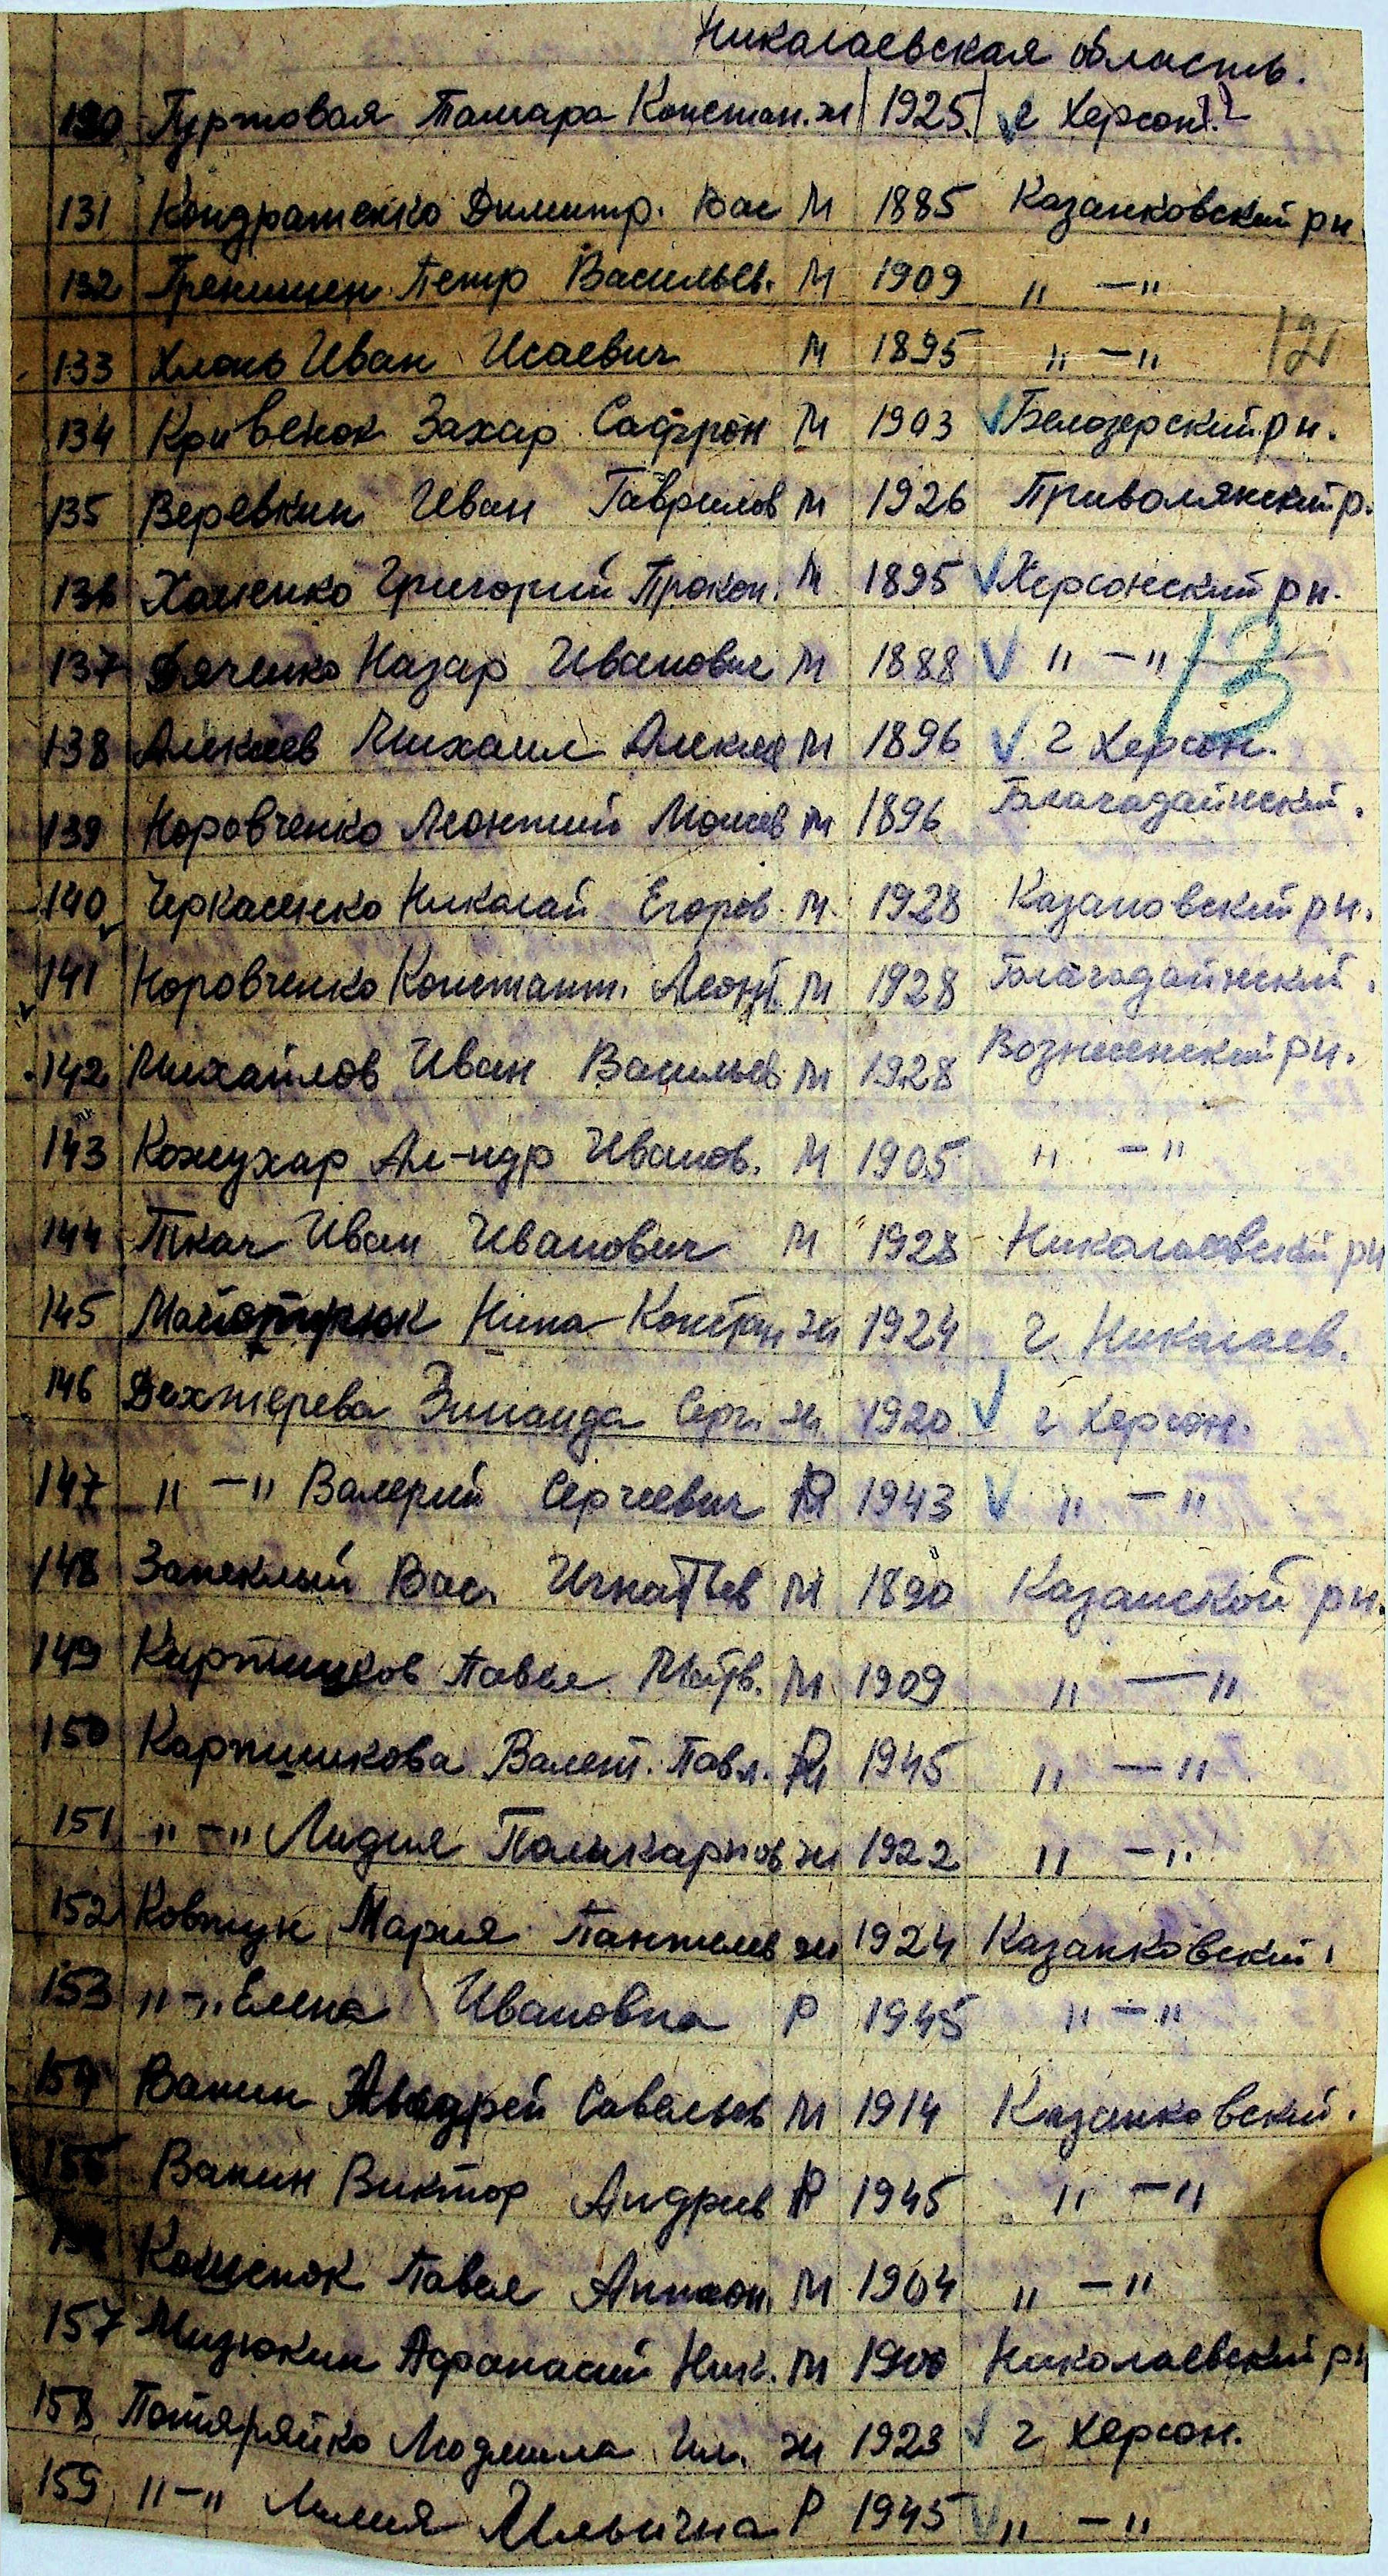 Николаевская область.
130 Гуртовая Тамара Констан. ж 1925. г Херсон.
131 Кондратенко Димитр. Вас М 1885 Казанковский рн
132 Петр Васильев. М 1909 " — "
133 Хлонь Иван Исаевич М 1895 " — "
134 Кривенок Захар Сафрон М 1903 Белозерский рн.
135 Веревкин Иван Гаврилов М 1926 Приволянский р.
136 Хоменко Григорий Прокоп. М 1895 Херсонский рн.
137 Дяченко Назар Иванович М 1888 " — "
13
138 Алексеев Михаил Алексе М 1896 г Херсон.
139 Норовченко Леонтий Моисев М 1896
140 Черкасенко Николай Егоров. М. 1928 Казановский рн.
141 Норовченко Константи. Леонт. М 1928
142 Михайлов Иван Васильев М 1928 Вознесенский рн.
143 Кожухар Ал-ндр Иванов. М 1905 " — "
144 Ткач Иван Иванович М 1928 Николаевский рн
145 Нина Констан ж 1924 г. Николаев.
146 Дехтерева Зинаида Серг. ж 1920 г Херсон.
147 " — " Валерий Сергеевич Р 1943 " — "
148 Запеклый Вас. Игнатьев М 1890 Казанской рн.
149 Картишков Павел Матв. М 1909 " — "
150 Картишкова Валент. Павл. Р 1945 " — "
151 " — " Лидия Поликарпов ж 1922 " — "
152 Ковтун Мария Пантелев ж 1924 Казанковский.
153 " — " Елена Ивановна Р 1945 " — "
154 Ванин Андрей Савельев М 1914 Казанковский.
155 Ванин Виктор Андреев Р 1945 " — "
Кошенок Павел Антон. М 1904 " — "
157 Мизюкин Афанасий Ник. М 1900 Николаевский рн
158 Потяряйко Людмила Ил. ж 1923 г Херсон.
159 " — " Лилия Ильична Р 1945 " — "